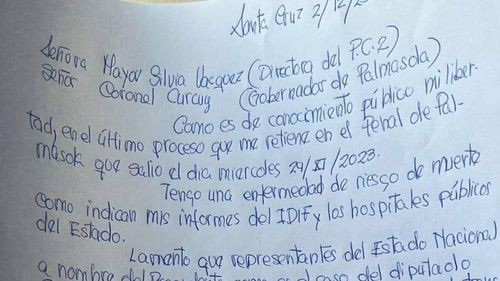 Santa Cruz 2/12/2
Señora Mayor Silvia Vasquez (Directora del P.C.2)
Señor Coronel Curcuy (Gobernador de Palmasola)
Como es de conocimiento público mi liber-
tad, en el último proceso que me retiene en el Penal de Pal-
masola que salio el día miercoles 29/XI/2023.
Tengo una enfermedad de riesgo de muerte
como indican mis informes del IDIF y los hospitales públicos
del Estado.
Lamento que representantes del Estado Nacional
a nombre del es el caso del diputado